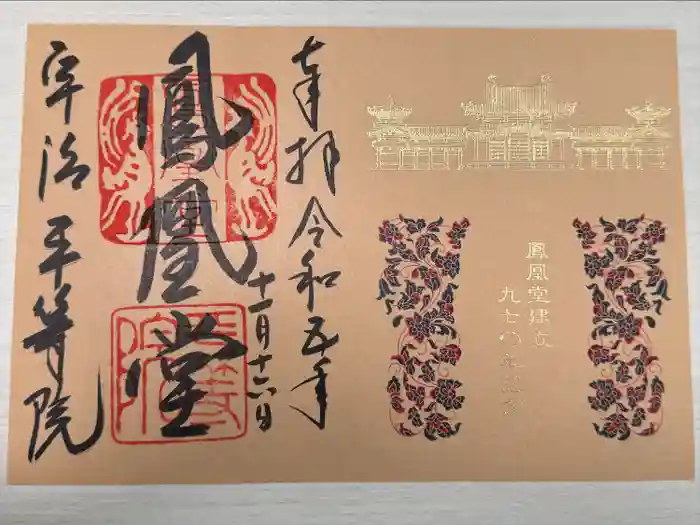 鳳凰堂建立
九七〇年記念
奉拝 令和五年
十一月十六日
鳳凰堂
平等院
宇治平等院